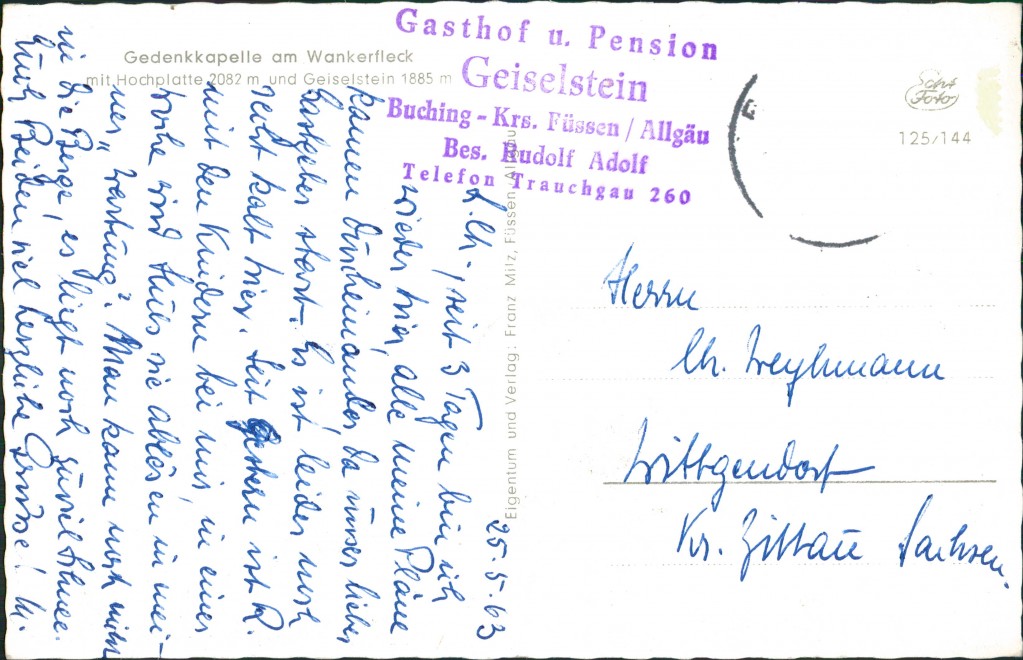 Gedenkkapelle am Wankerfleck
mit Hochplatte 2082 m und Geiselstein 1885 m
Gasthof u. Pension
Geiselstein
Buching - Krs. Füssen / Allgäu
Bes. Rudolf Adolf
Telefon Trauchgau 260
Schö
Foto
125/144
Eigentum und Verlag: Franz Milz, Füssen, Allgäu
25.5.63
seit 3 Tagen bin ich
wieder hier, alle meine Pläne
kamen durcheinander da unser lieber
Gastgeber starb. Es ist leider noch
recht kalt hier. Seit Gestern ist R.
mit den Kindern bei mir, in einer
Woche wird Huls sie ablösen in mei-
ner "Wartung". Man kann noch nicht
in die Berge, es liegt noch zuviel Schnee.
Euch Beiden viel herzliche Grüsse!
Herrn
Ch. Weyhmann
Wittgendorf
Kr. Zittau Sachsen.